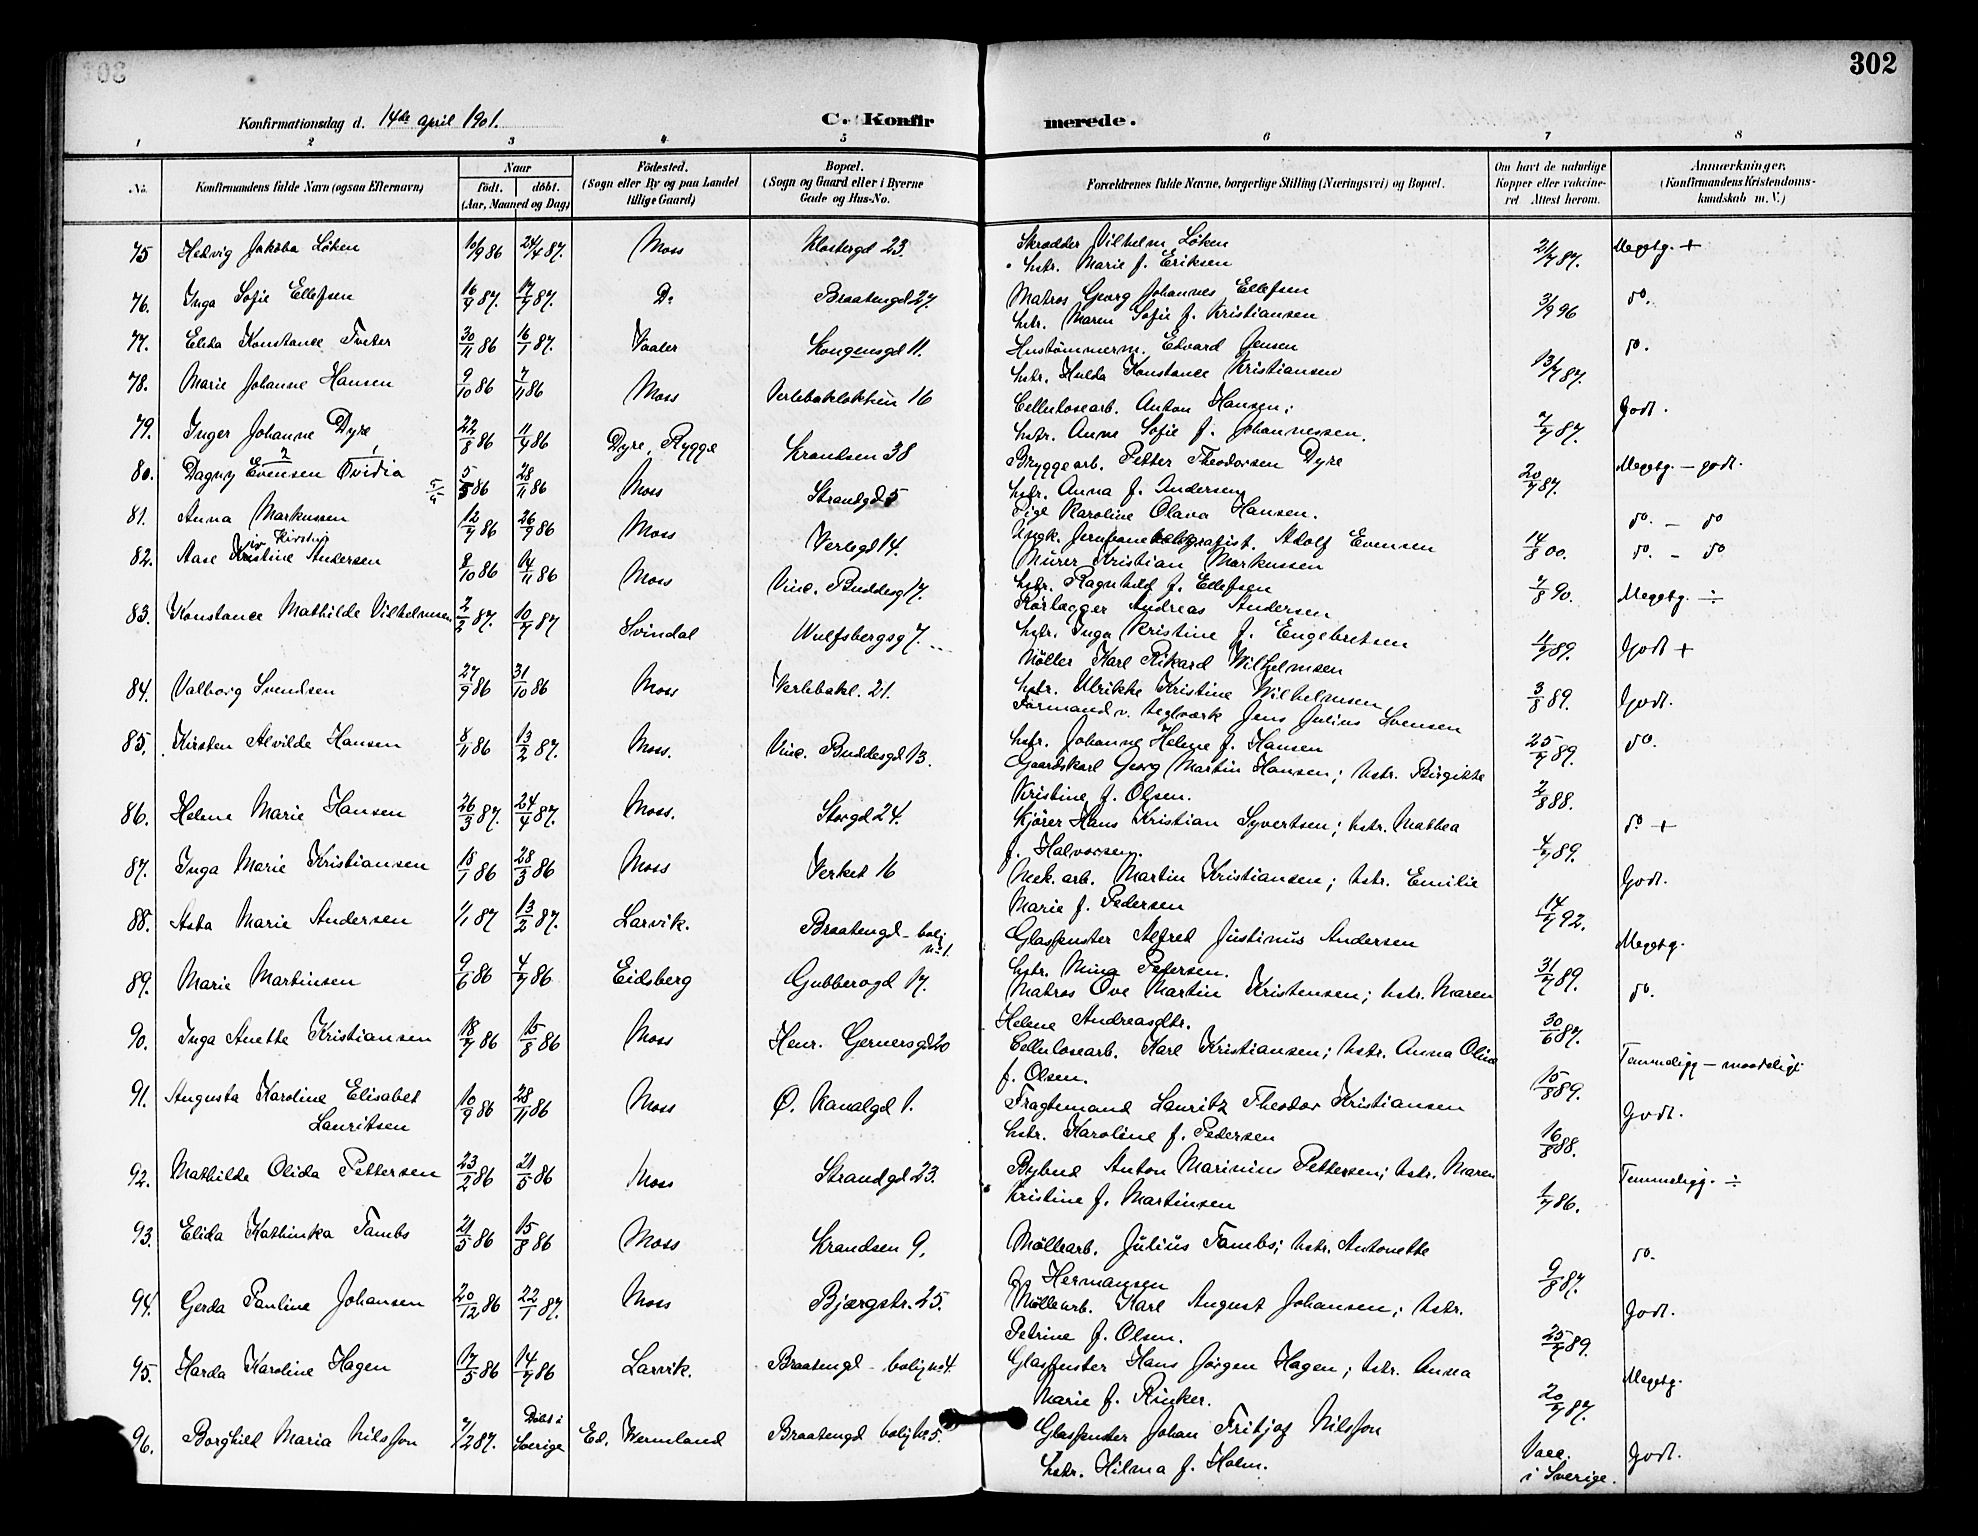 302
Konfirmationsdag d. 14de april 1901.
C. Konfirmerede.
1 2 3 4 5 6 7 8
No. Konfirmandens fulde Navn (ogsaa Efternavn) Naar født. døbt. (Aar, Maaned og Dag) Fødested. (Sogn eller By og paa Landet tillige Gaard) Bopæl. (Sogn og Gaard eller i Byerne Gade og Hus-No. Forældrenes fulde Navne, borgerlige Stilling (Næringsvei) og Bopæl. Om havt de naturlige Kopper eller vaccineret. Attest herom. Anmærkninger, (Konfirmandens Kristendomskundskab m. V.)
75 Hedvig Jakoba Løken 10/9 86 24/4 87. Moss Klostergd 23. Skrædder Vilhelm Løken
hstr. Marie f. Eriksen 2/7 87. Megetg. +
76. Inga Sofie Ellefsen 16/4 87. 17/7 87. Do Braatengd 27. Matros Georg Johannes Ellefsen
hstr. Maren Sofie f. Kristiansen 3/9 96 do.
77. Elida Konstance Tveter 30/11 86 16/1 87. Vaaler Kongensgd 11. Hustømmerm. Edvard Jensen
hstr. Hulda Konstance Kristiansen 13/7 87. do.
78. Marie Johanne Hansen 9/10 86 7/11 86 Moss Verlebakløkken 16 Cellulosearb. Anton Hansen;
hstr. Anne Sofie f. Johannessen. 7/7 87. Godt.
79. Inger Johanne Dyre 22/8 86 11/9 86 Dyre, Rygge Krandsen 38 Bryggearb. Petter Theodorsen Dyre
hstr. Anna f. Andersen 20/7 87. Megetg. - godt.
80. Dagny Evensen Ovidia 5/5 86 28/11 86 Moss Strandgd 5 Pige Karoline Olava Hansen.
Ungk. Jernbanetelegrafist. Adolf Evensen 14/8 00. do. - do
81. Anna Markussen 12/7 86 26/9 86 Moss Verlegd 14. Murer Kristian Markussen
hstr. Ragnhild f. Ellefsen 7/8 90. do. - do
82. Aase Kristine Andersen 8/10 86 14/11 86 Moss Vinc. Buddesg 17. Rørlægger Andreas Andersen
hstr. Inga Kristine f. Engebretsen 4/7 89. Megetg. ÷
83. Konstance Mathilde Vilhelmsen 2/2 87. 10/7 87 Svindal Wulfsbergsg 7. Møller Karl Rikard Wilhelmsen
hstr. Ulrikke Kristine Wilhelmsen 3/8 89. Godt +
84. Valborg Svendsen 27/9 86 31/10 86 Moss Verlebakl. 21. Formand v. teglværk Jens Julius Svensen
hstr. Johanne Helene f. Hansen 25/7 89. Godt.
85. Kirsten Alvilde Hansen 8/11 86 13/2 87. Moss. Vinc. Buddesgd 13. Gaardskarl Georg Martin Hansen; hstr. Birgitte
Kristine f. Olsen. 2/8 88. do.
86. Helene Marie Hansen 26/3 87. 24/4 87. Moss. Storgd 24. Kjører Hans Kristian Syvertsen; hstr. Mathea
f. Halvorsen. 4/7 89. do +
87. Inga Marie Kristiansen 18/1 86 28/3 86 Moss Verket 16 Mek. arb. Martin Kristiansen; hstr. Emilie
Marie f. Pedersen 14/7 92. Godt.
88. Asta Marie Andersen 1/1 87 13/2 87. Larvik. Braatengd - bolig no 1. Glaspuster Alfred Justinus Andersen
hstr. Mina Petersen. 31/7 89. Megetg.
89. Marie Martinsen 9/6 86 4/7 86 Eidsberg Gubberogd 17. Matros Ove Martin Kristensen; hstr. Maren
Helene Andreasdtr. 30/6 87. do.
90. Inga Anette Kristiansen 18/7 86 15/8 86 Moss Henr. Gernersgd 20 Cellulosearb. Karl Kristiansen; hstr. Anna Olina
f. Olsen. 15/8 89. Temmeligg - maadeligt
91. Augusta Karoline Elisabet
Lauritsen 10/9 86 28/11 86 Moss Ø. Kanalgd 1. Fragtemand Lauritz Theodor Kristiansen
hstr. Karoline f. Pedersen 16/8 88. Godt.
92. Mathilde Olida Pettersen 23/2 86 21/5 86 Moss Strandgd 23. Bybud Anton Marinius Pettersen; hstr. Maren
Kristine f. Martinsen 1/7 86. Temmeligg. ÷
93. Elida Kathinka Tambs 21/5 86 15/8 86 Moss Krandsen 9. Møllearb. Julius Tambs; hstr. Antonette
Hermansen 9/8 87. do.
94. Gerda Pauline Johansen 20/12 86 22/1 87. Moss Bjærgstr. 25. Møllearb. Karl August Johansen; hstr.
Petrine f. Olsen. 25/7 89. Godt.
95. Harda Karoline Hagen 17/5 86 14/7 86 Larvik. Braatengd - bolig no 4. Glaspuster Hans Jørgen Hagen; hstr. Anna
Marie f. Rinker. 20/7 87. Megetg.
96. Borghild Maria Nilsson 7/2 87. Døbt i Sverige Ed, Wermland Braatengd bolig no 5. Glaspuster Johan Fritjof Nilsson
hstr. Hilma f. Holm. Vacc. i Sverige. Godt.